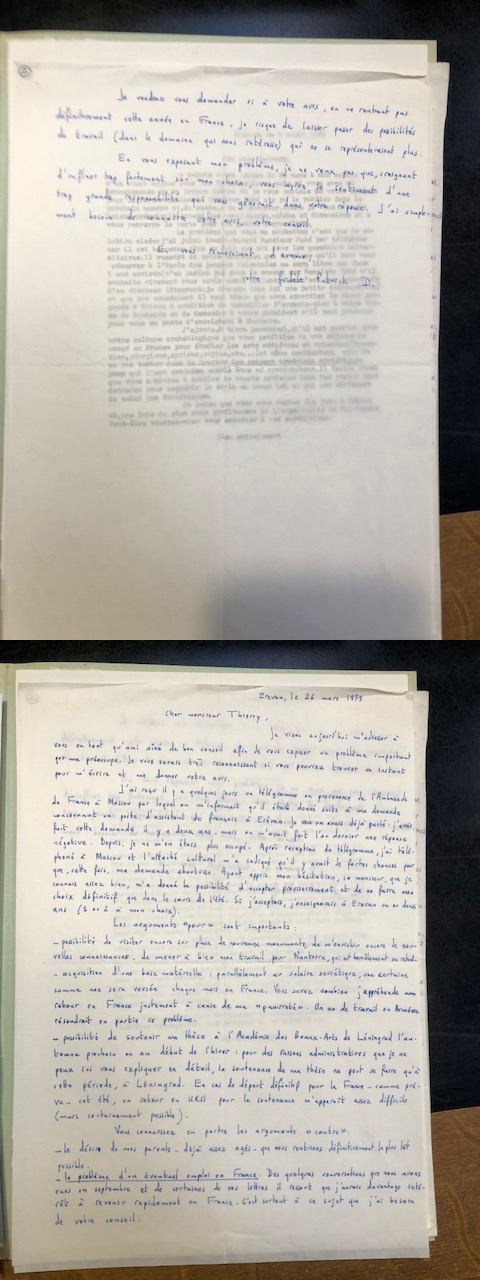 Je voudrais vous demander si à votre avis, en ne rentrant pas
définitivement cette année en France, je risque de laisser passer des possibilités
de travail (dans le domaine qui nous intéresse) qui ne se représenteraient plus.
En vous exposant mon problème, je ne veux pas que, craignant
d'influer trop fortement sur mon choix, vous ayiez le sentiment d'une
trop grande responsabilité qui vous gênerait dans votre réponse. J'ai simple-
ment besoin de connaître votre avis, votre conseil.
En vous remerciant d'avance,
votre fidèle Patrick D.
Erevan, le 26 mars 1975
Cher monsieur Thierry,
Je viens aujourd'hui m'adresser à
vous en tant qu'ami aîné de bon conseil afin de vous exposer un problème important
qui me préoccupe. Je vous serais très reconnaissant si vous pouviez trouver un instant
pour m'écrire et me donner votre avis.
J'ai reçu il y a quelques jours un télégramme en provenance de l'Ambassade
de France à Moscou par lequel on m'informait qu'il était donné suite à ma demande
concernant un poste d'assistant de français à Erévan. Je vous en avais déjà parlé: j'avais
fait cette demande il y a deux ans, mais on m'avait fait l'an dernier une réponse
négative. Depuis, je ne m'en étais plus occupé. Après réception du télégramme, j'ai télé-
phoné à Moscou et l'attaché culturel m'a indiqué qu'il y avait de fortes chances pour
que, cette fois, ma demande aboutisse. Ayant appris mon hésitation, ce monsieur, que je
connais assez bien, m'a donné la possibilité d'accepter provisoirement et de ne faire mon
choix définitif que dans le cours de l'été. Si j'acceptais, j'enseignerais à Erevan un ou deux
ans (1 ou 2 à mon choix).
Les arguments "pour" sont importants:
- possibilité de visiter encore sur place de nouveaux monuments, de m'enrichir encore de nou-
velles connaissances, de mener à bien mon travail pour Nanterre, qui est terriblement en retard.
- acquisition d'une base matérielle: parallèlement au salaire soviétique, une certaine
somme me sera versée chaque mois en France. Vous savez combien j'appréhende mon
retour en France justement à cause de ma "pauvreté". Un an de travail en Arménie
résoudrait en partie ce problème.
- possibilité de soutenir ma thèse à l'Académie des Beaux-Arts de Léningrad l'au-
tomne prochain ou au début de l'hiver: pour des raisons administratives que je ne
peux ici vous expliquer en détail, la soutenance de ma thèse ne peut se faire qu'à
cette période, à Léningrad. En cas de départ définitif pour la France - comme pré-
vu - cet été, un retour en URSS pour la soutenance m'apparaît assez difficile
(mais certainement possible).
Vous connaissez en partie les arguments "contre":
- le désire de mes parents - déjà assez agés - que nous rentrions définitivement le plus tôt
possible.
- le problème d'un éventuel emploi en France. Des quelques conversations que nous avons
eues en septembre et de certaines de vos lettres il ressort que j'aurais davantage inté-
rêt à revenir rapidement en France. C'est surtout à ce sujet que j'ai besoin
de votre conseil.